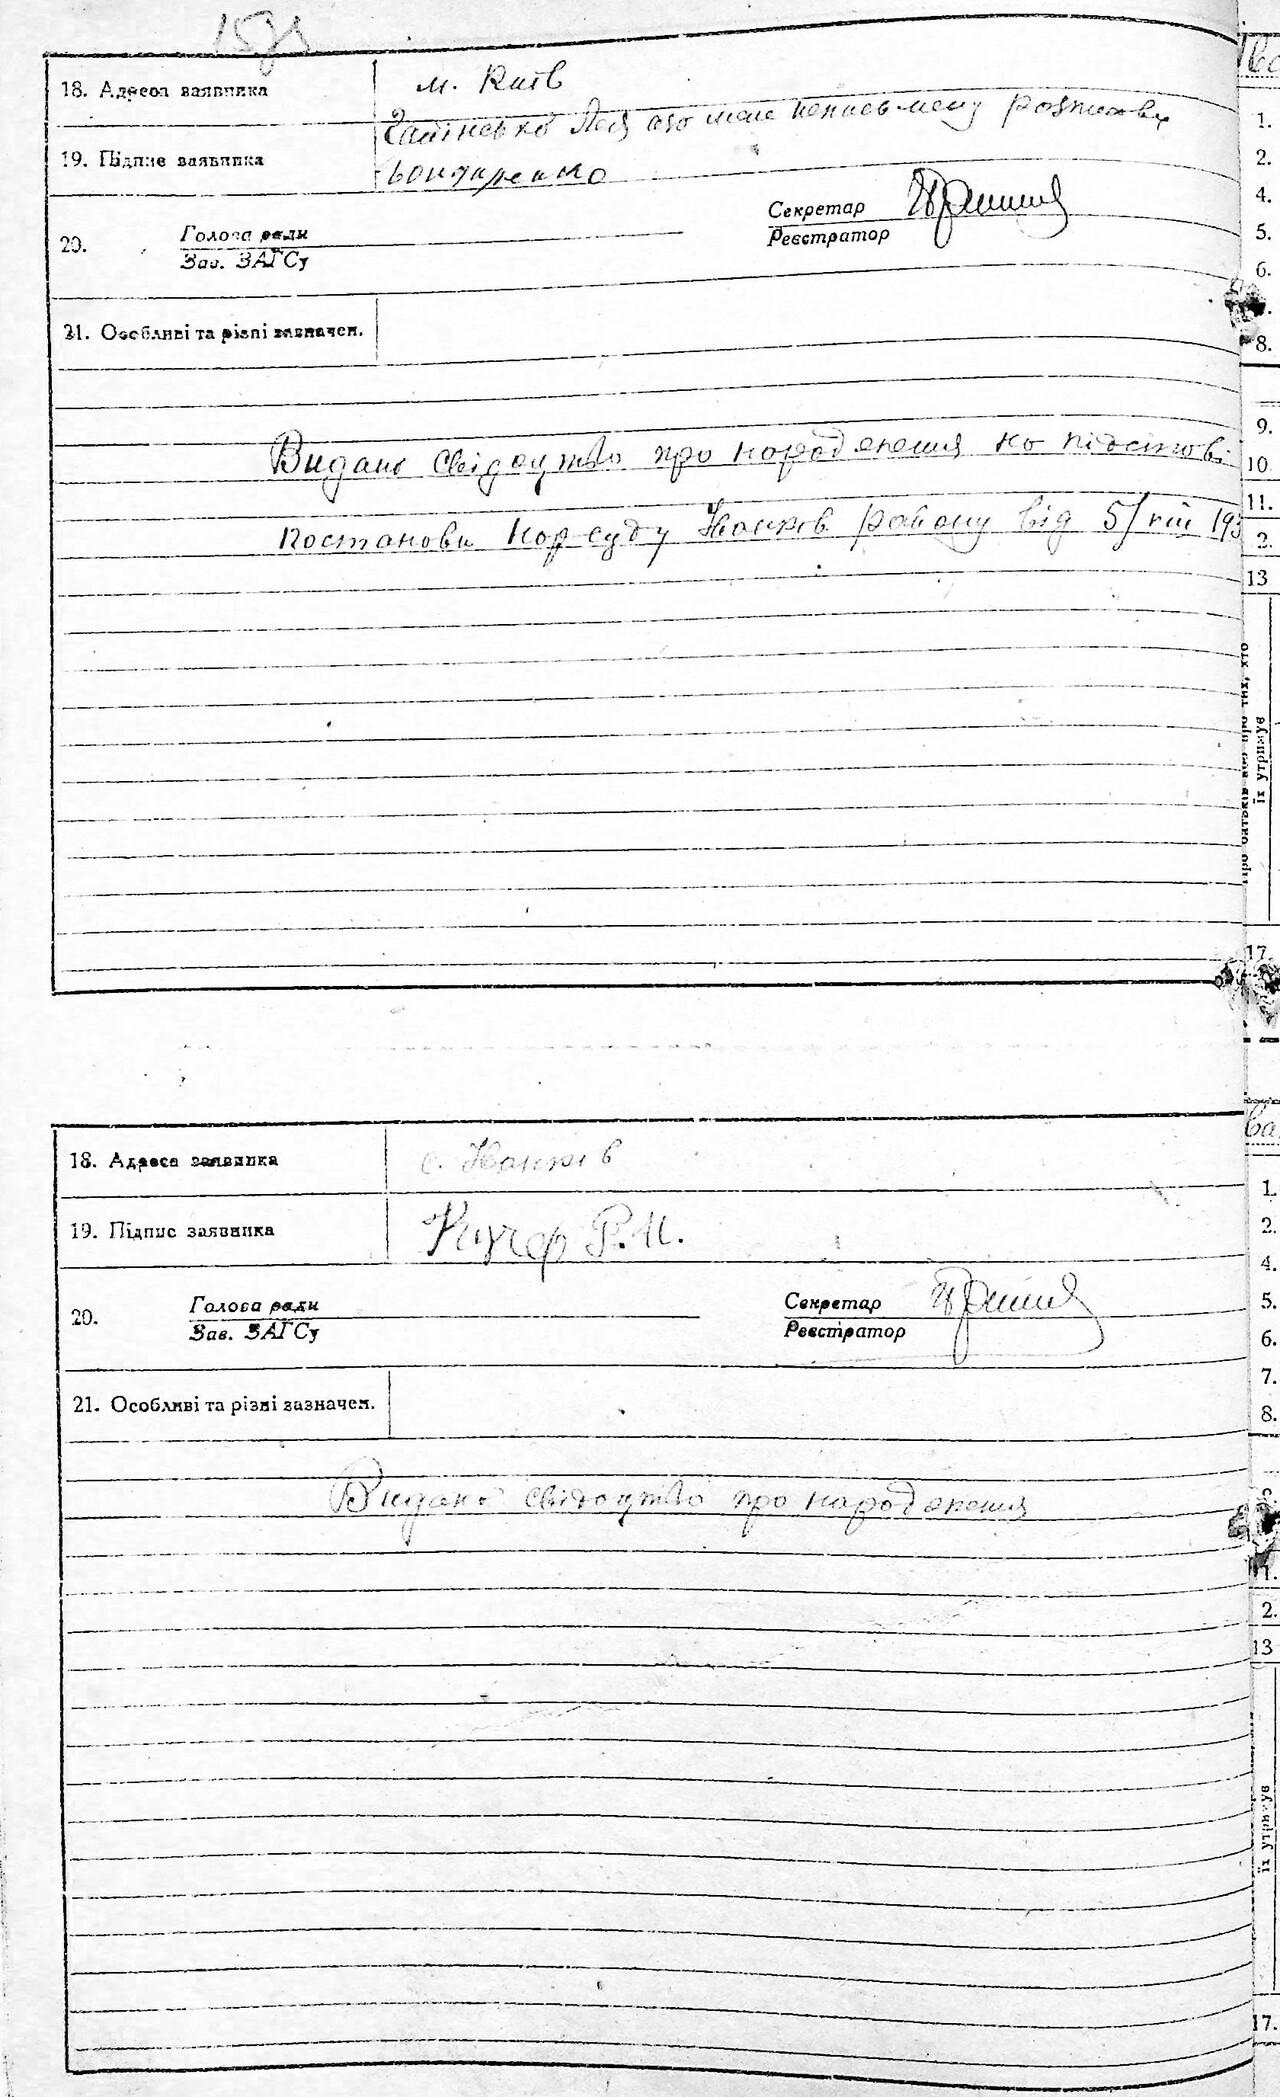 18. Адреса заявника м. Київ
неписьмену
19. Підпис заявника Бондаренко
20. Голова ради Секретар
Зав. ЗАГСу Реєстратор
21. Особливі та різні зазначен.
Видано свідоцтво про народження на підставі
постанови Нарсуду Іванків району від 5/VIII 193
18. Адреса заявника с. Іванків
19. Підпис заявника Кучер Р.И.
20. Голова ради Секретар
Зав. ЗАГСу Реєстратор
21. Особливі та різні зазначен.
Видано свідоцтво про народження
1.
2.
4.
5.
6.
8.
9.
10
11.
2.
13
Про батьків або про тих, хто
їх утримує
17
1.
2.
4.
5.
6.
7.
8.
2.
13
їх утримує
17.